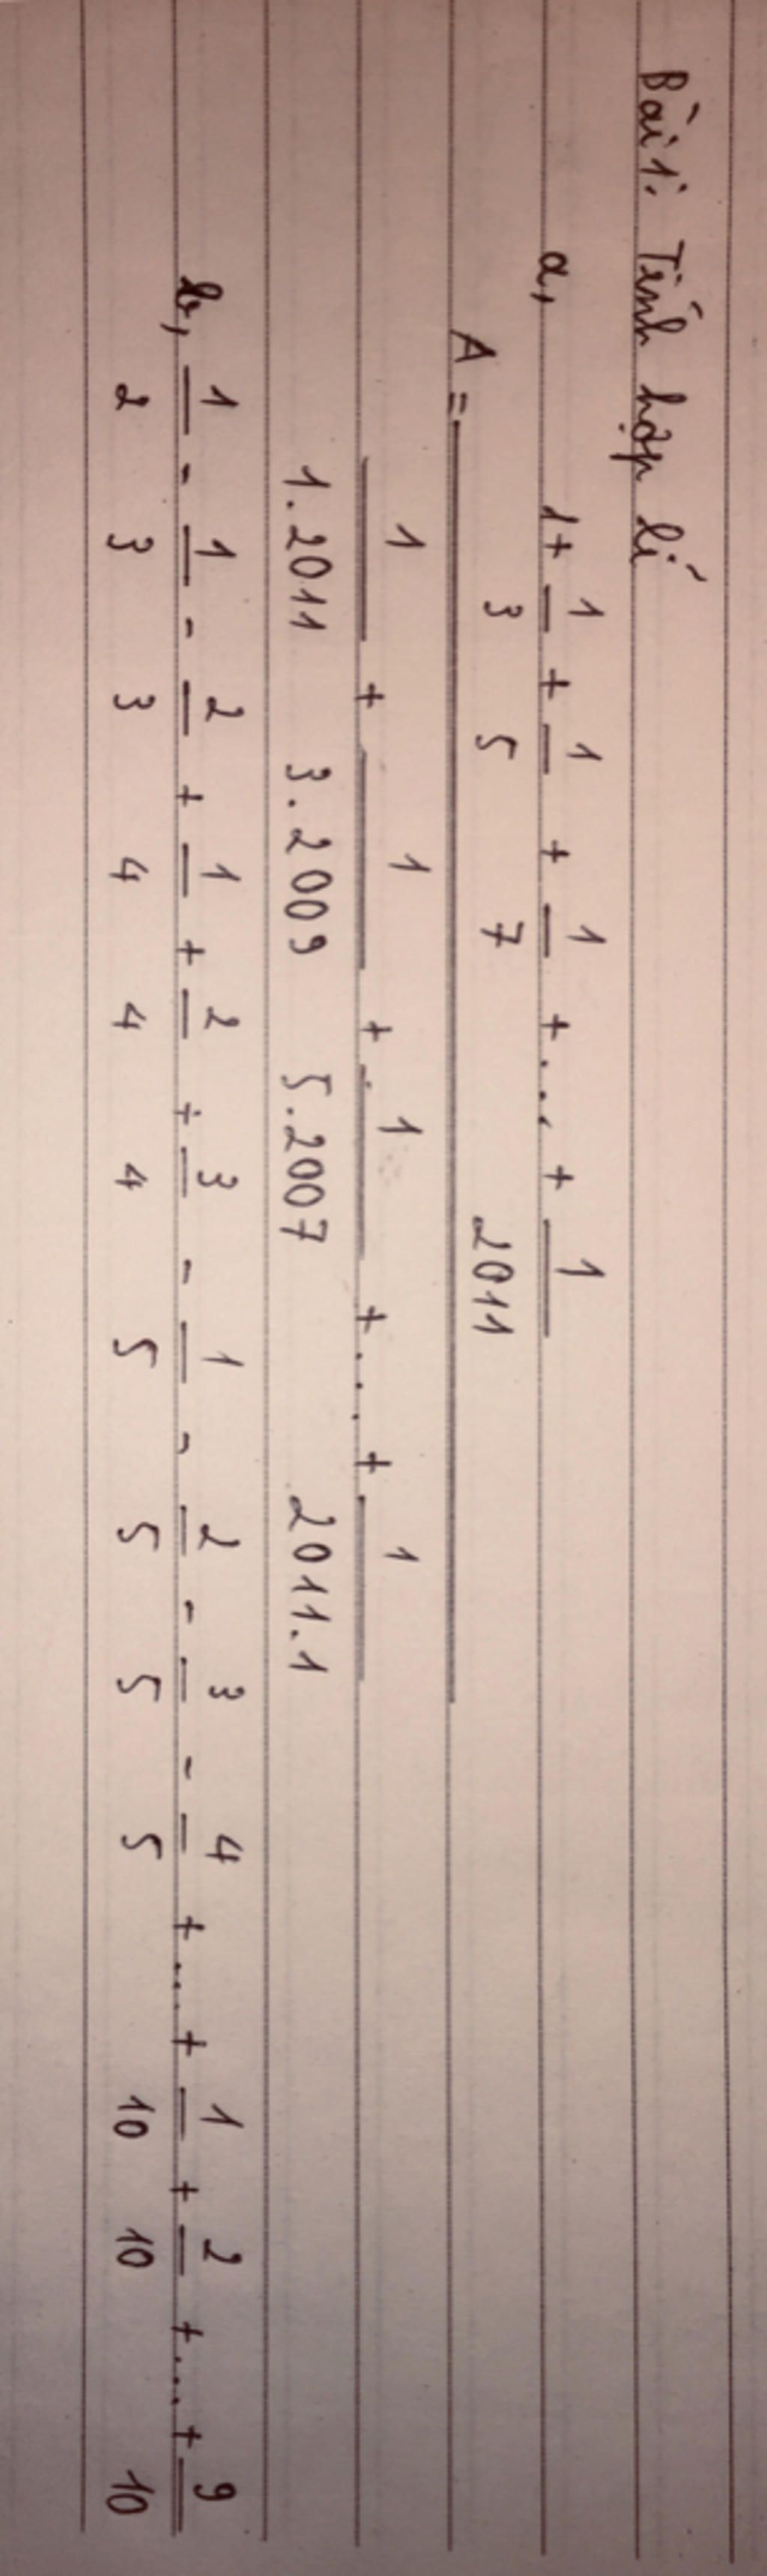 Bài 1: Tính hợp lí
a,
1 + 1/3 + 1/5 + 1/7 + ... + 1/2011
A =
1/1.2011 + 1/3.2009 + 1/5.2007 + ... + 1/2011.1
b, 1/2 - 1/3 - 2/3 + 1/4 + 2/4 + 3/4 - 1/5 - 2/5 - 3/5 - 4/5 + ... + 1/10 + 2/10 + ... + 9/10